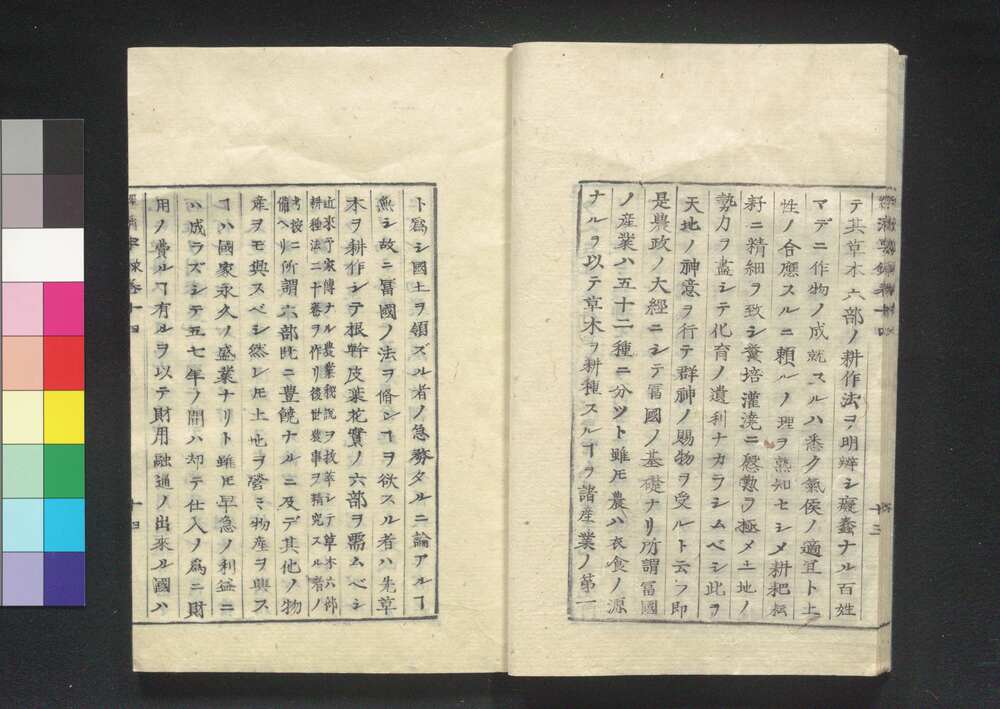 テ其草木六部ノ耕作法ヲ明辨シ癡蠢ナル百姓
マデニ作物ノ成就スルハ悉ク氣候ノ適宜ト土
性ノ合應スルニ頼ルノ理ヲ熟知セシメ耕耙耘
耔ニ精細ヲ致シ糞培灌澆ニ慇懃ヲ極メ土地ノ
勢力ヲ盡シテ化育ノ遺利ナカラシムベシ此ヲ
天地ノ神意ヲ行テ群神ノ賜物ヲ受ルト云フ即
是農政ノ大經ニシテ冨國ノ基礎ナリ所謂冨國
ノ産業ハ五十二種ニ分ツト雖𪜈農ハ衣食ノ源
ナルヲ以テ草木ヲ耕種スルヿヲ諸産業ノ第一
ト為シ國土ヲ領ズル者ノ急務タルニ論アルヿ
無シ故ニ冨國ノ法ヲ脩ンヿヲ欲スル者ハ先草
木ヲ耕作シテ根幹皮葉花實ノ六部ヲ需ムベシ
近来予家傳ナル農業秘説ヲ抜萃シテ草木六部
耕種法二十巻ヲ作リ後世農事ヲ精究スル者ノ
考按ニ
備ヘリ所謂六部既ニ豊饒ナルニ及デ其他ノ物
産ヲモ興スベシ然レ𪜈土地ヲ營ミ物産ヲ興ス
ヿハ國家永久ノ盛業ナリト雖𪜈早急ノ利益ニ
ハ成ラズシテ五七年ノ間ハ却テ仕入ノ為ニ財
用ノ費ルヿ有ルヲ以テ財用融通ノ出来ル國ハ
十四